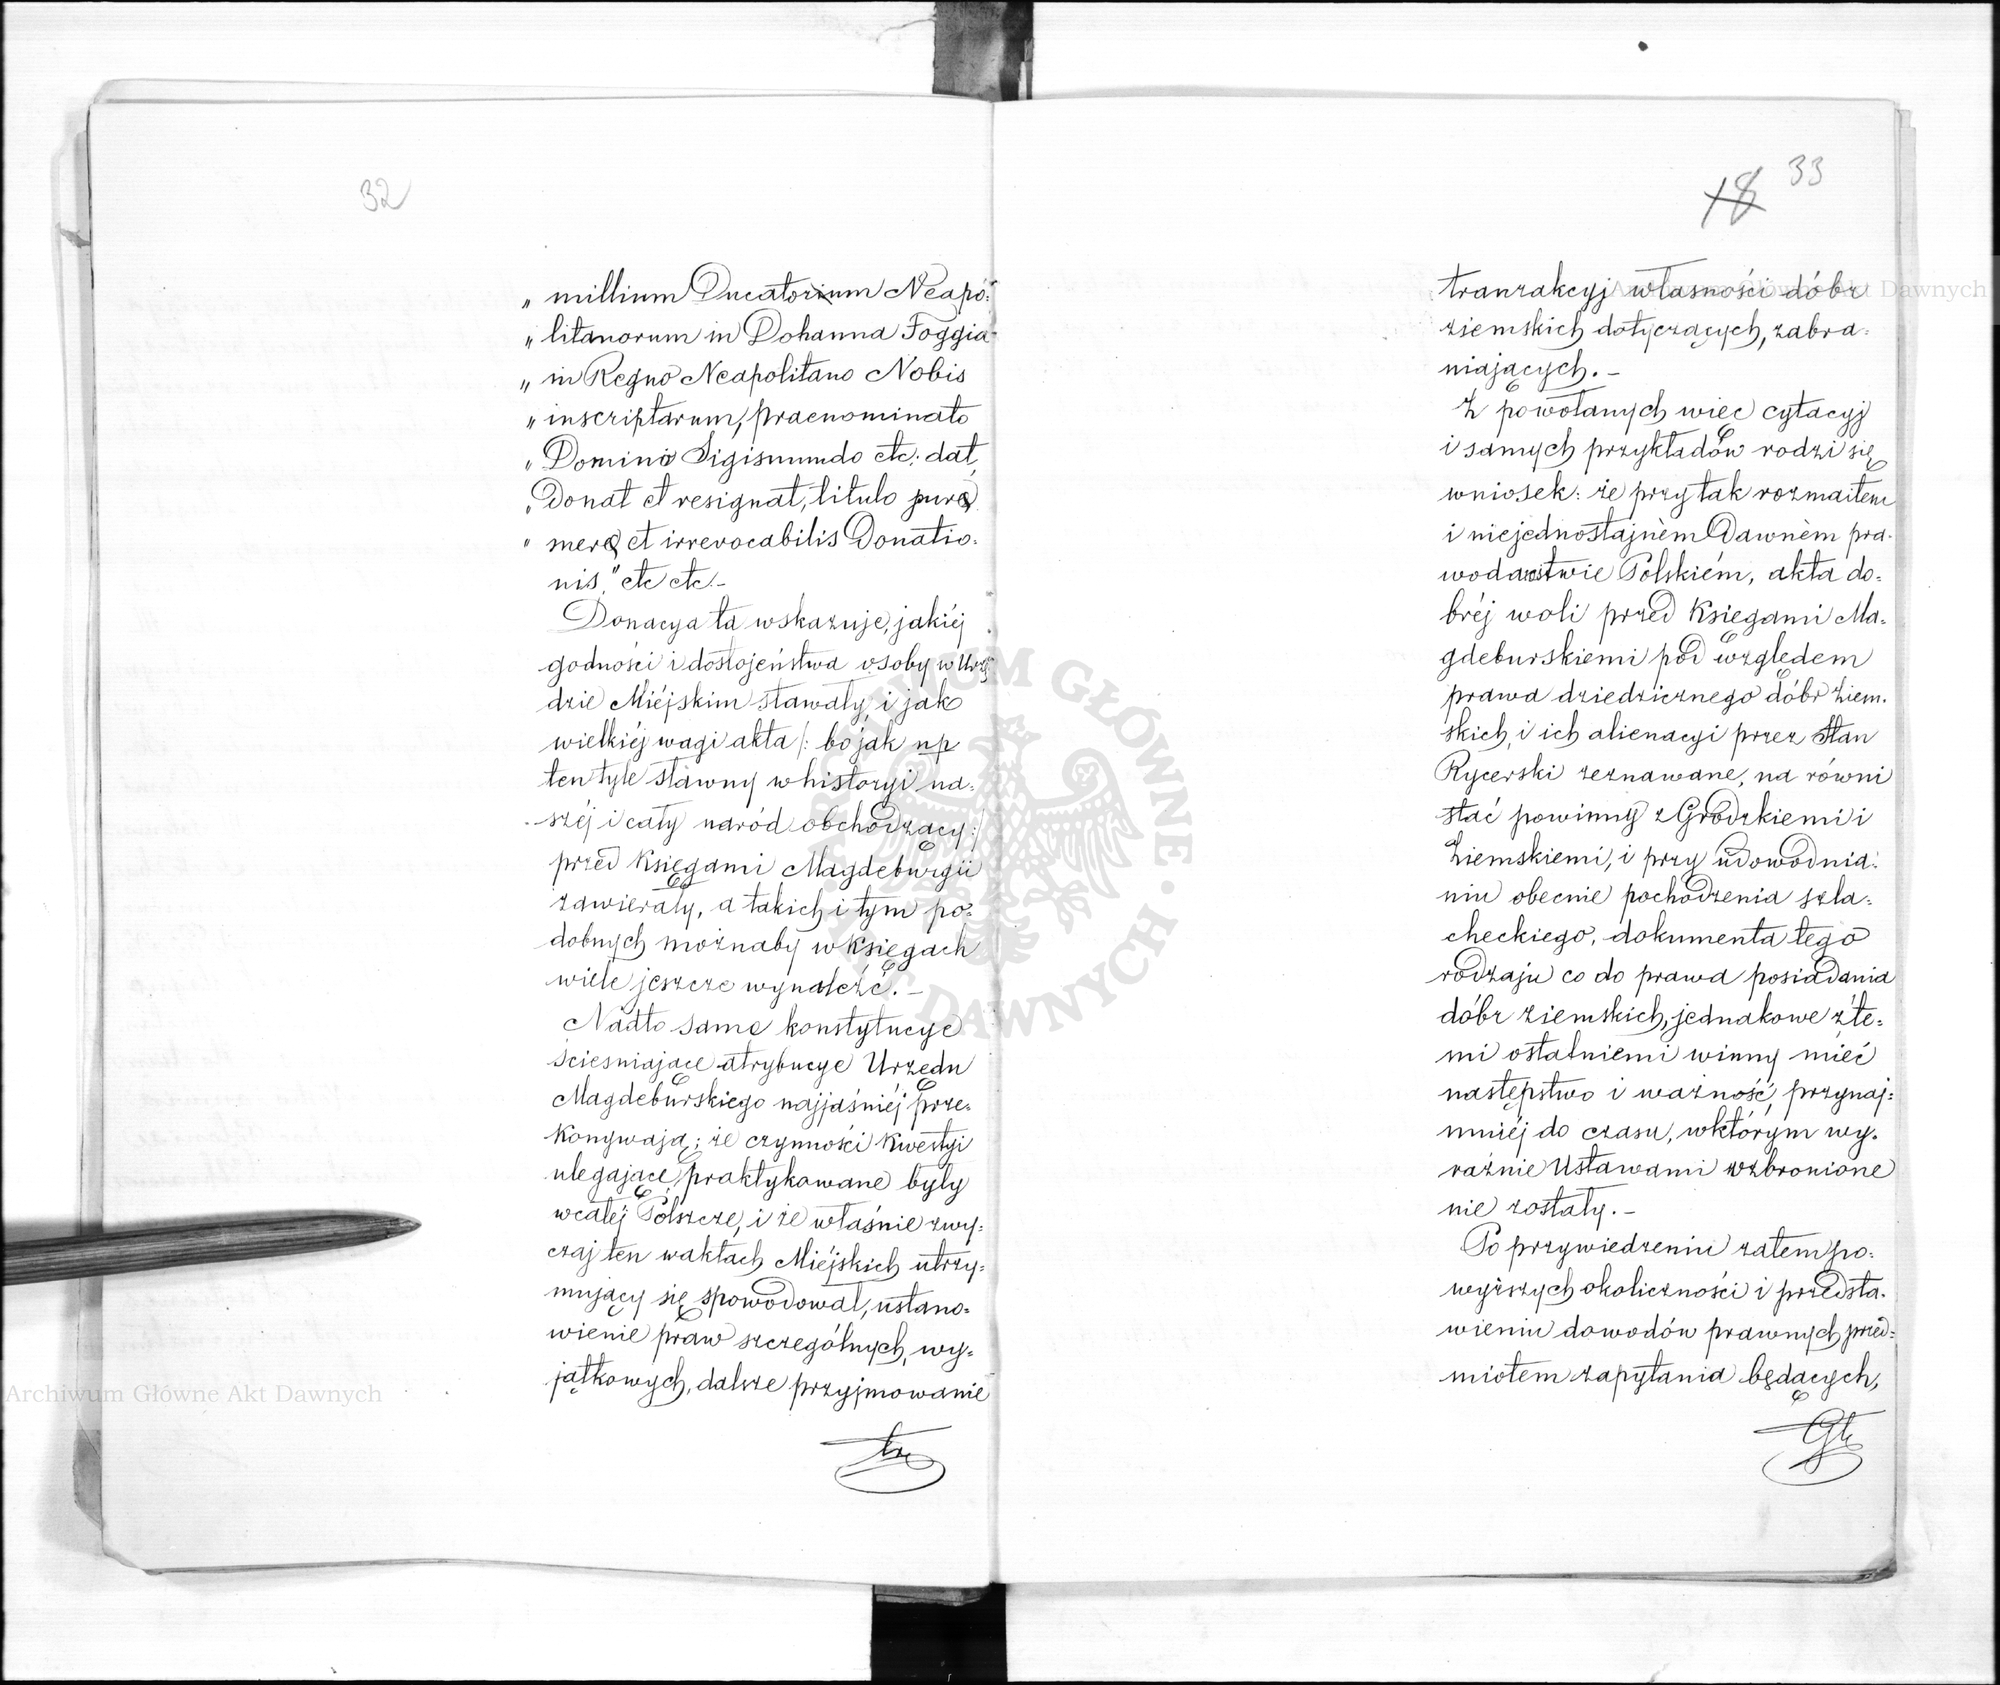 32
„ millium Ducatorium Neapo:
„ litanorum in Dohanna Foggia
„ in Regno Neapolitano Nobis
„ inscriptarum, praenominato
„ Domino Sigismundo etc: dat,
„ donat et resignat, titulo pure
„ mere et irrevocabilis Donatio:
nis," etc etc.–
Donacya ta wskazuje, jakiéj
godności i dostojeństwa osoby w Urzę
dzie Miéjskim stawały, i jak
wielkiéj wagi akta /: bo jak np
ten tyle sławny w historyi na:
széj i cały naród obchodzący :/
przed Księgami Magdeburgii
zawierały, a takich i tym po:
dobnych możnaby w Księgach
wiele jeszcze wynaleźć. –
Nadto same konstytucye
ścieśniające atrybucye Urzędu
Magdeburskiego najjaśniéj prze:
konywają; że czynności kwestyi
ulegające, praktykowane były
w całéj Polszcze, i że właśnie zwy:
czaj ten w aktach Miéjskich utrzy:
mujący się spowodował, ustano:
wienie praw szczególnych, wy:
jątkowych, dalsze przyjmowanie
tr
18 33
tranzakcyj własności dóbr
ziemskich dotyczących, zabra:
niających. –
Z powołanych więc cytacyj
i samych przykładów rodzi się
wniosek: że przy tak rozmaitem
i niejednostajném dawném pra:
wodawstwie Polskiém, akta do:
bréj woli przed Księgami Ma:
gdeburskiemi pod względem
prawa dziedzicznego dóbr Ziem:
skich, i ich alienacyi przez Stan
Rycerski zeznawane, na równi
stać powinny z Grodzkiemi i
Ziemskiemi, i przy udowodnia:
niu obecnie pochodzenia szla:
checkiego, dokumenta tego
rodzaju co do prawa posiadania
dóbr ziemskich, jednakowe z te:
mi ostatniemi winny mieć
następstwo i ważność, przynaj:
mniéj do czasu, w którym wy:
raźnie Ustawami wzbronione
nie zostały. –
Po przywiedzeniu zatem po:
wyższych okoliczności i przedsta:
wieniu dowodów prawnych przed:
miotem zapytania będących,
Archiwum Główne Akt Dawnych
Archiwum Główne Akt Dawnych
ARCHIWUM GŁÓWNE AKT DAWNYCH